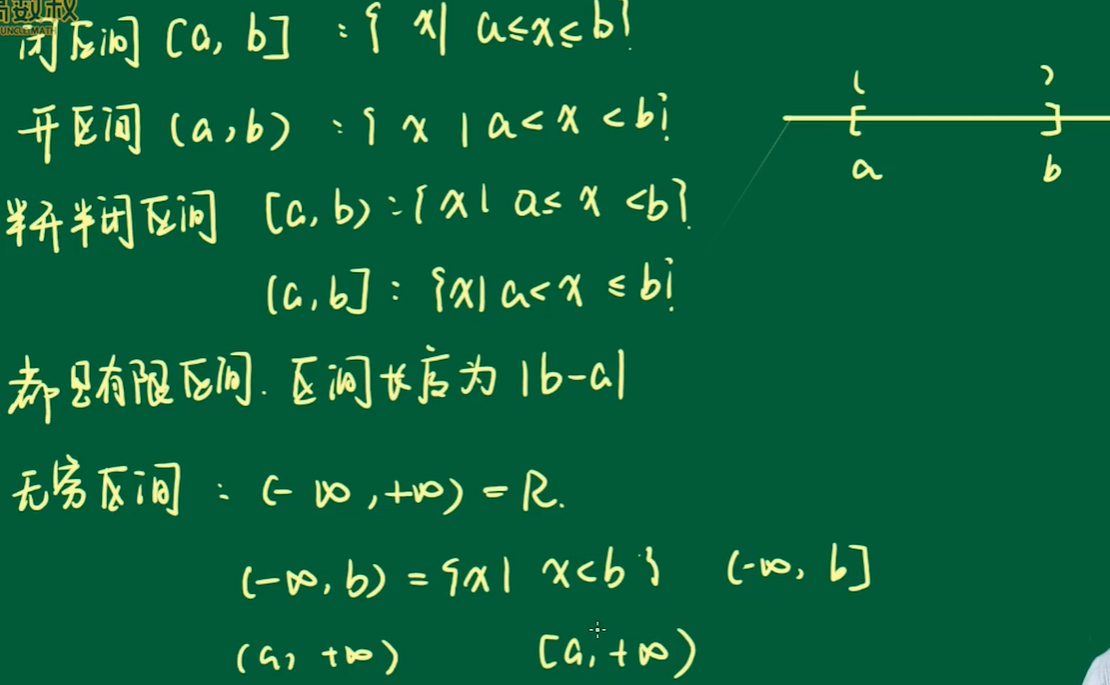 高数叔
UNCLE MATH
闭区间 [a, b] : { x | a ≤ x ≤ b }
开区间 (a, b) : { x | a < x < b }
( )
[ ]
a b
半开半闭区间 [a, b) : { x | a ≤ x < b }
(a, b] : { x | a < x ≤ b }
都是有限区间. 区间长度为 |b-a|
无穷区间 : (-∞, +∞) = R.
(-∞, b) = { x | x < b } (-∞, b]
(a, +∞) [a, +∞)